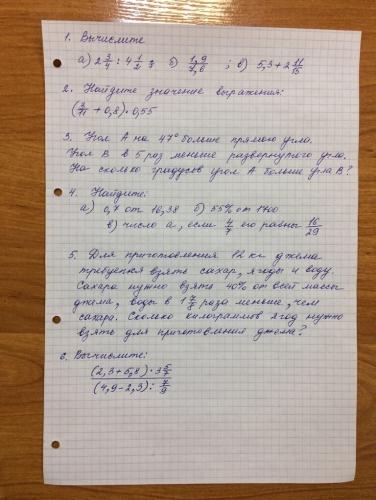 1. Вычислите
а) 2 3/4 : 4 1/2 ; б) 1,9/7,6 ; в) 5,3 + 2 11/15
2. Найдите значение выражения:
(3/11 + 0,8) · 0,55
3. Угол А на 47° больше прямого угла.
Угол В в 5 раз меньше развернутого угла.
На сколько градусов угол А больше угла В?
4. Найдите:
а) 0,7 от 10,38 б) 55% от 1700
в) число а, если 4/7 его равны 16/29
5. Для приготовления 12 кг джема
требуется взять сахар, ягоды и воду.
Сахара нужно взять 40% от всей массы
джема, воды в 1 7/8 раза меньше, чем
сахара. Сколько килограммов ягод нужно
взять для приготовления джема?
6. Вычислите:
(2,3+5,8) · 3 5/7
(4,9-2,3) : 7/9